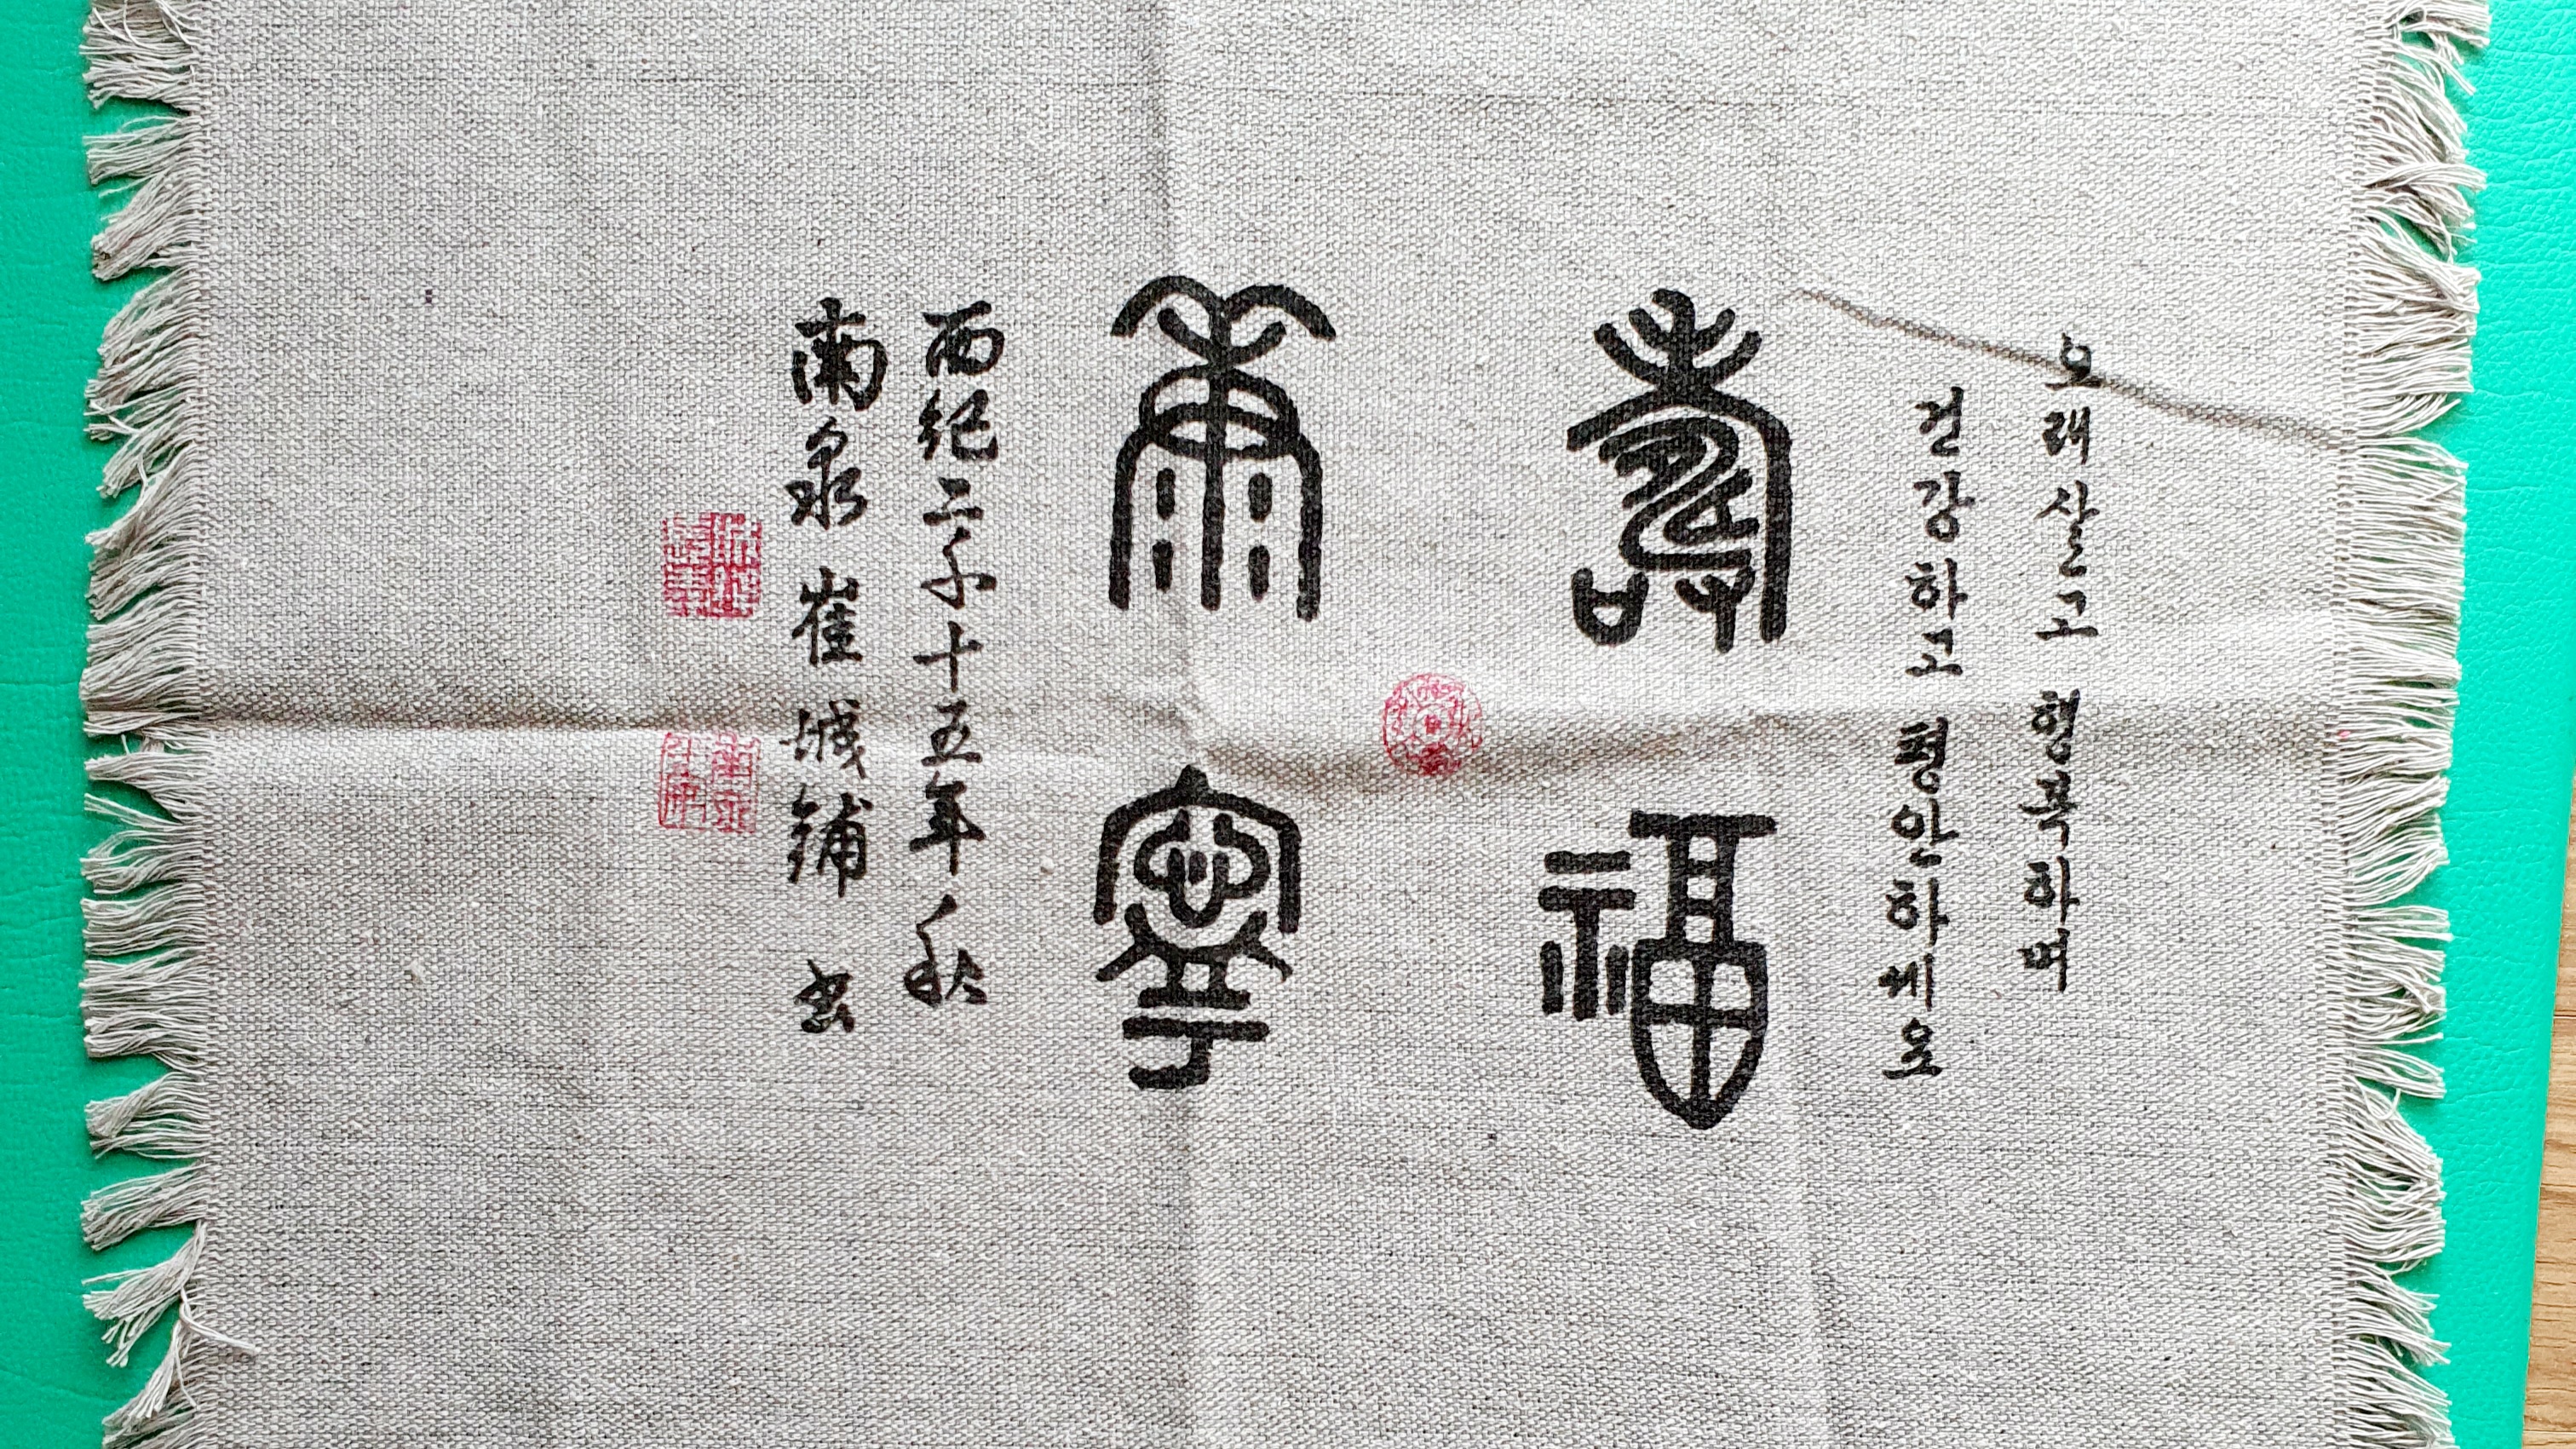 오래살고 형복하며
건강하고 평안하세요
壽福
康寧
西紀二千十五年秋
南泉 崔城鋪 書